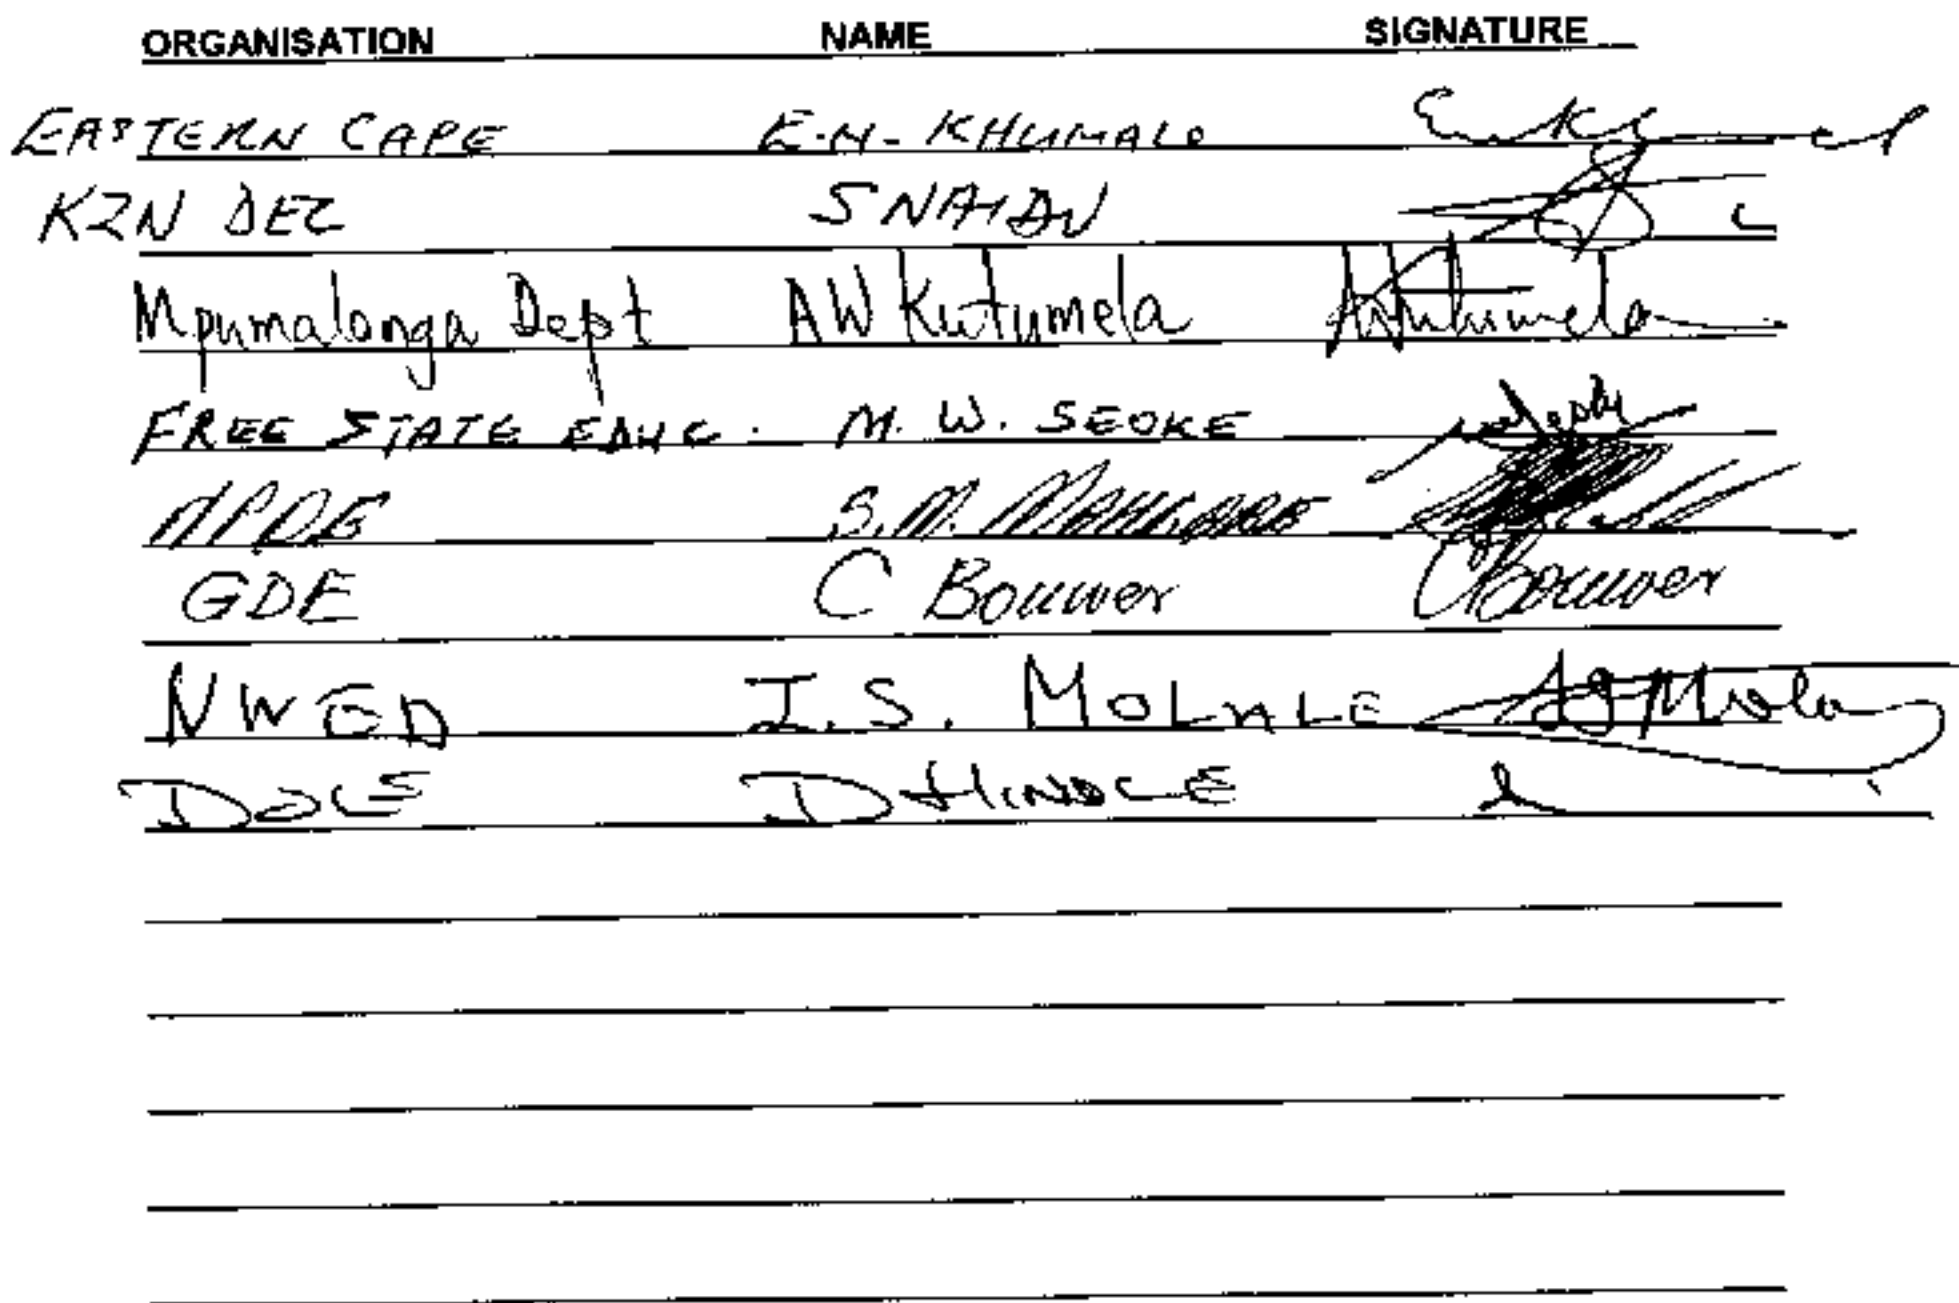 ORGANISATION NAME SIGNATURE
EASTERN CAPE E.M. KHUMALO
KZN DEC S NAIDU
Mpumalanga Dept AW Kutumela AWKutumela
FREE STATE EDUC. M. W. SEOKE
S.M.
GDE C Bouwer CBouwer
NWED I.S. MOLALE
DOE D HINDLE